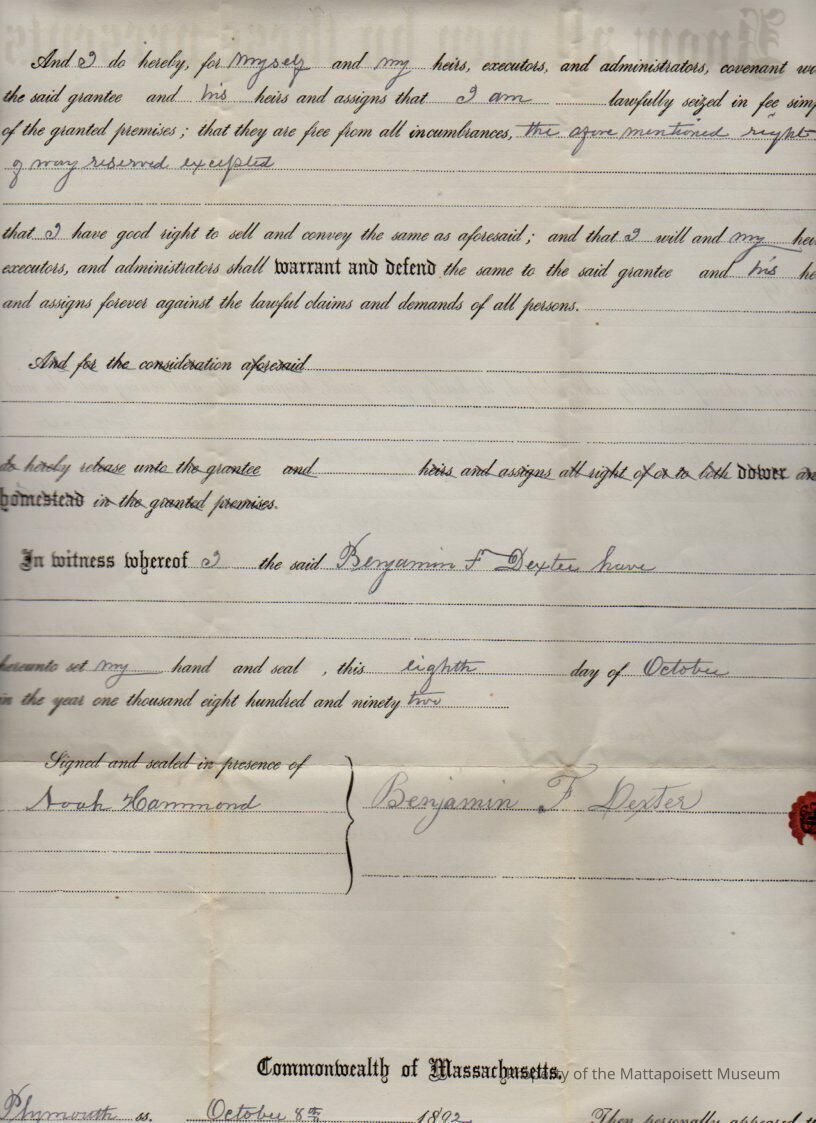 Know all men by these presents
And I do hereby, for myself and my heirs, executors, and administrators, covenant wi
the said grantee and his heirs and assigns that I am lawfully seized in fee simp
of the granted premises; that they are free from all incumbrances, the afore mentioned right
of way reserved excepted
that I have good right to sell and convey the same as aforesaid; and that I will and my hei
executors, and administrators shall warrant and defend the same to the said grantee and his he
and assigns forever against the lawful claims and demands of all persons.
And for the consideration aforesaid
do hereby release unto the grantee and heirs and assigns all right of or to both dower an
homestead in the granted premises.
In witness whereof I the said Benjamin F Dexter have
hereunto set my hand and seal , this eighth day of October
in the year one thousand eight hundred and ninety two
Signed and sealed in presence of
Noah Hammond Benjamin F Dexter
Commonwealth of Massachusetts.
Property of the Mattapoisett Museum
Plymouth ss. October 8th 1892 Then personally appeared th